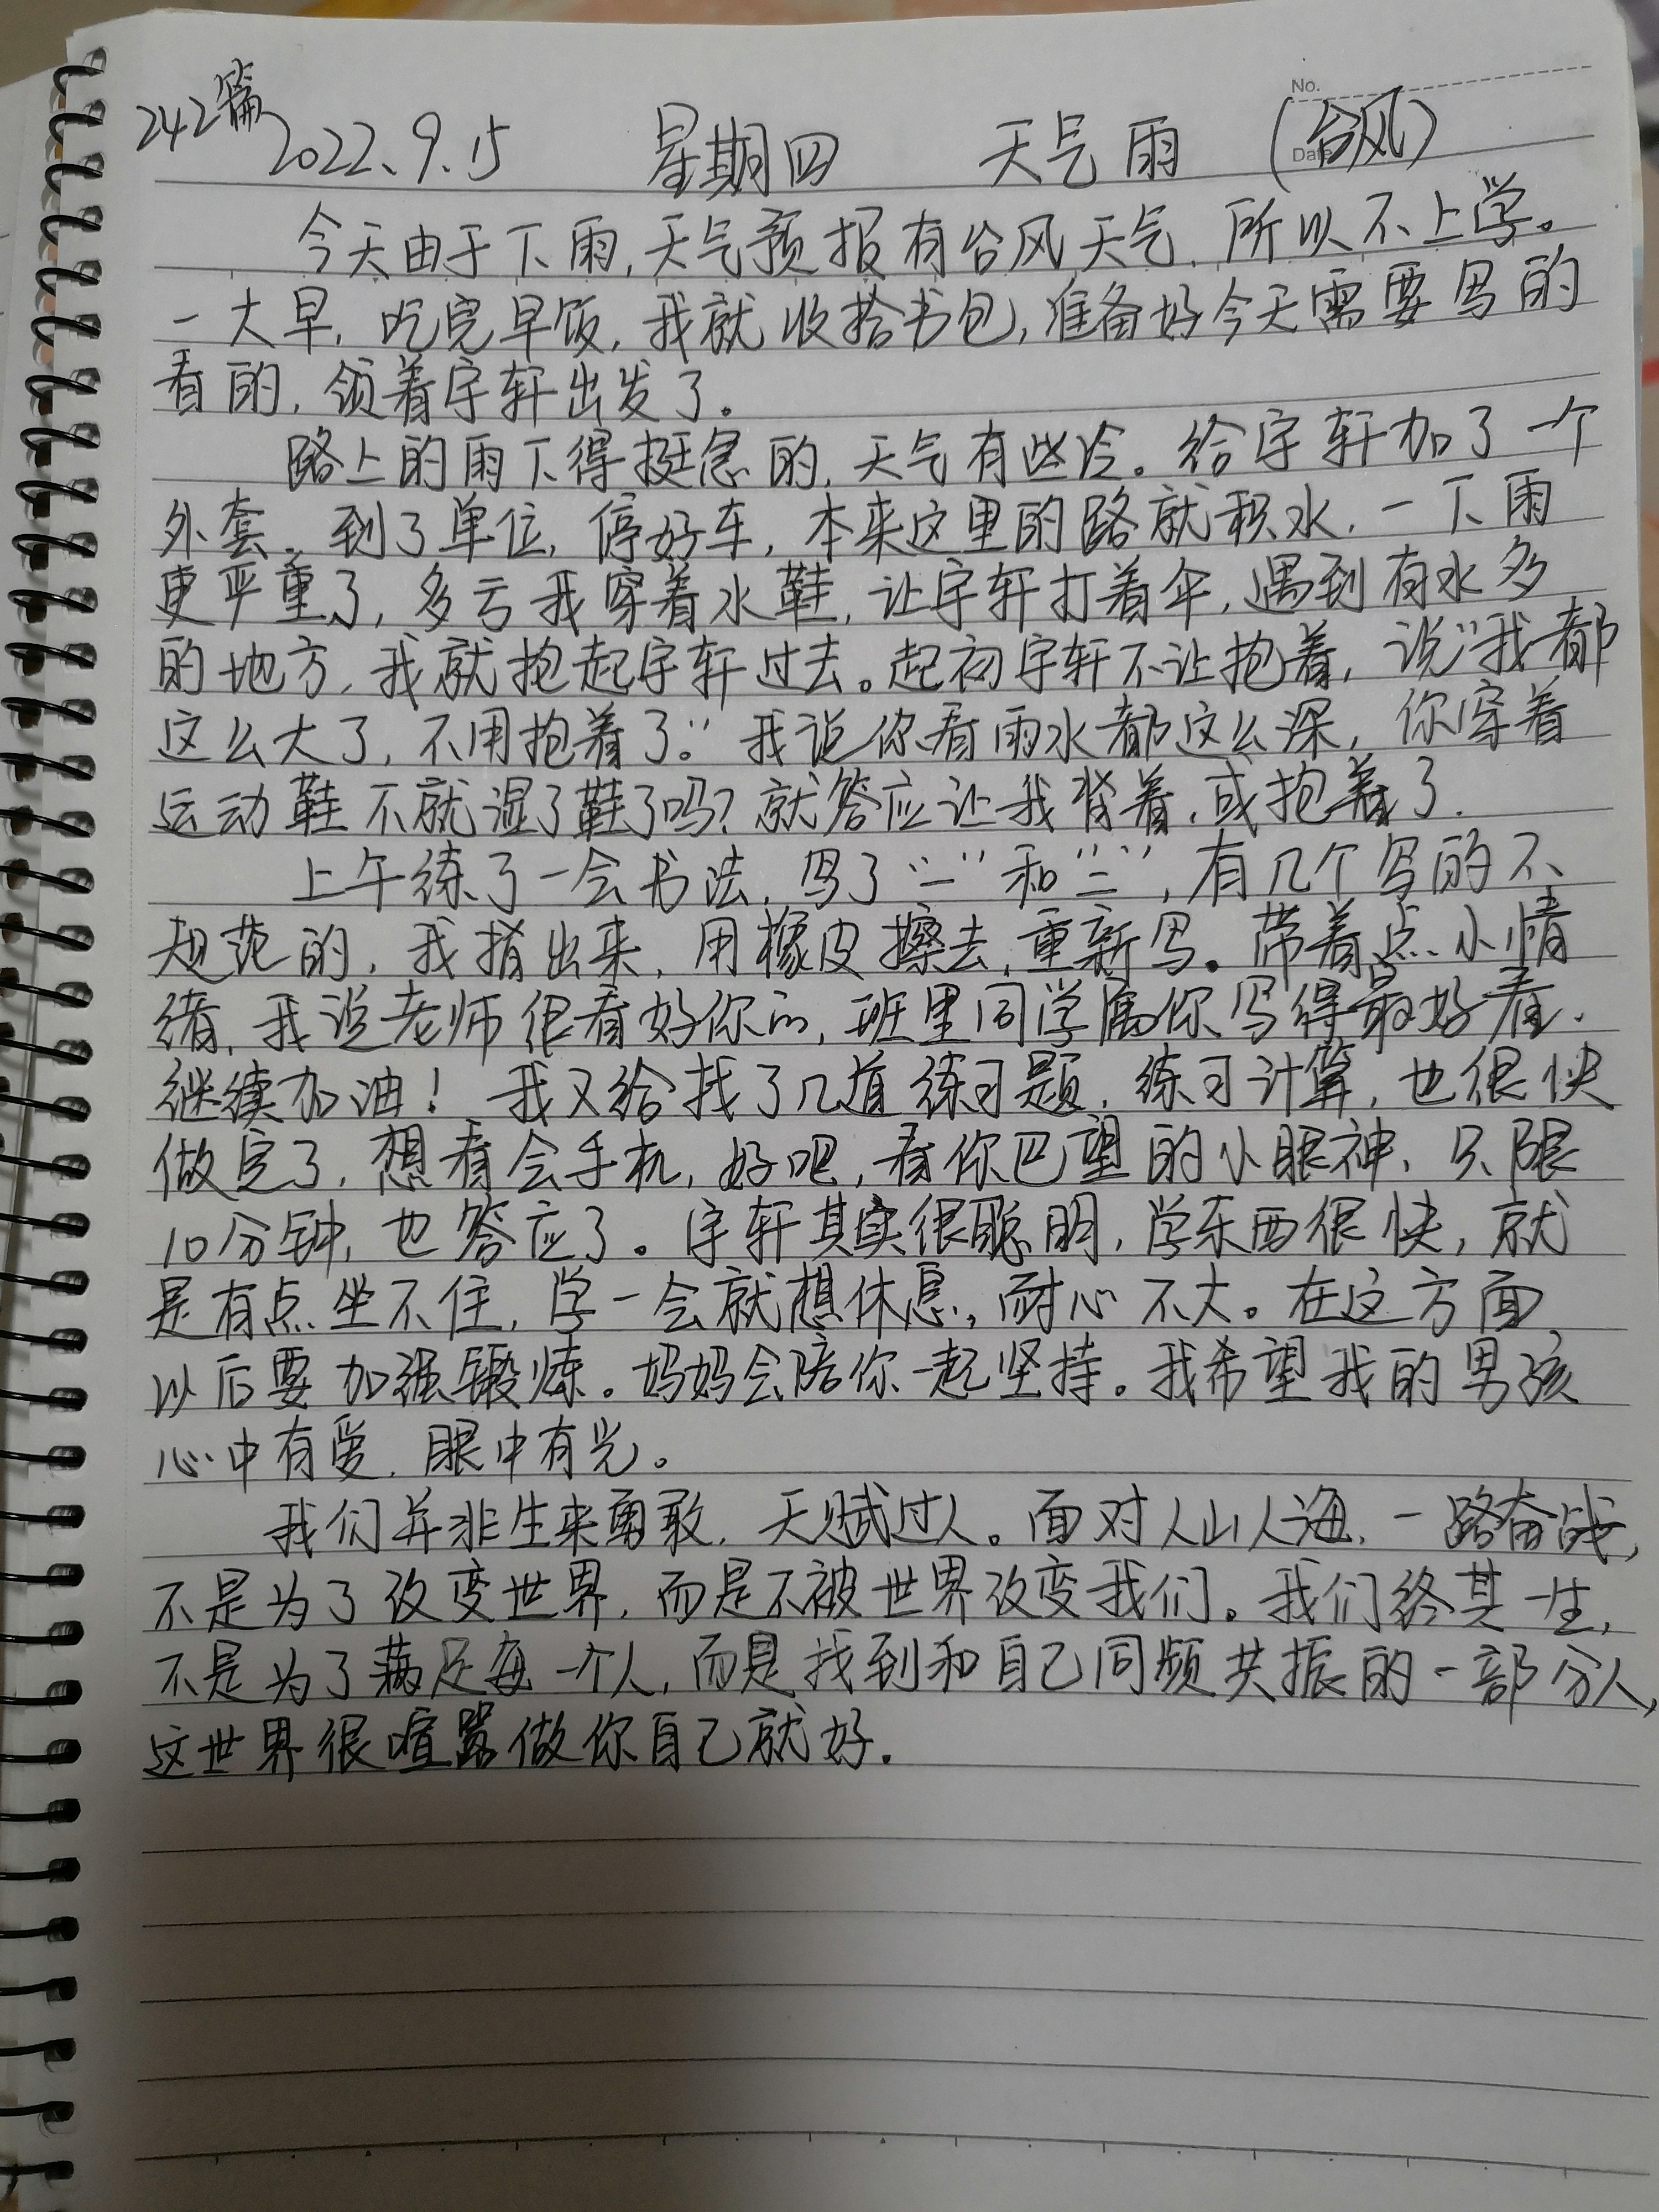 No.
Date
242篇
2022、9.15 星期四 天气雨 (台风)
今天由于下雨,天气预报有台风天气,所以不上学。
一大早,吃完早饭,我就收拾书包,准备好今天需要写的
看的,领着宇轩出发了。
路上的雨下得挺急的,天气有些冷。给宇轩加了一个
外套。到了单位,停好车,本来这里的路就积水,一下雨
更严重了,多亏我穿着水鞋,让宇轩打着伞,遇到有水多
的地方,我就抱起宇轩过去。起初宇轩不让抱着,说“我都
这么大了,不用抱着了。”我说你看雨水都这么深,你穿着
运动鞋不就湿了鞋了吗?就答应让我背着,或抱着了.
上午练了一会书法,写了“二”和“三”,有几个写的不
规范的,我指出来,用橡皮擦去,重新写。带着点小情
绪,我说老师很看好你的,班里同学属你写得最好看.
继续加油!我又给找了几道练习题,练习计算,也很快
做完了,想看会手机,好吧,看你巴望的小眼神、只限
10分钟,也答应了。宇轩其实很聪明,学东西很快,就
是有点坐不住,学一会就想休息,耐心不大。在这方面
以后要加强锻炼。妈妈会陪你一起坚持。我希望我的男孩
心中有爱,眼中有光。
我们并非生来勇敢,天赋过人。面对人山人海,一路奋战,
不是为了改变世界,而是不被世界改变我们。我们终其一生,
不是为了满足每一个人,而是找到和自己同频共振的一部分人,
这世界很喧嚣做你自己就好.